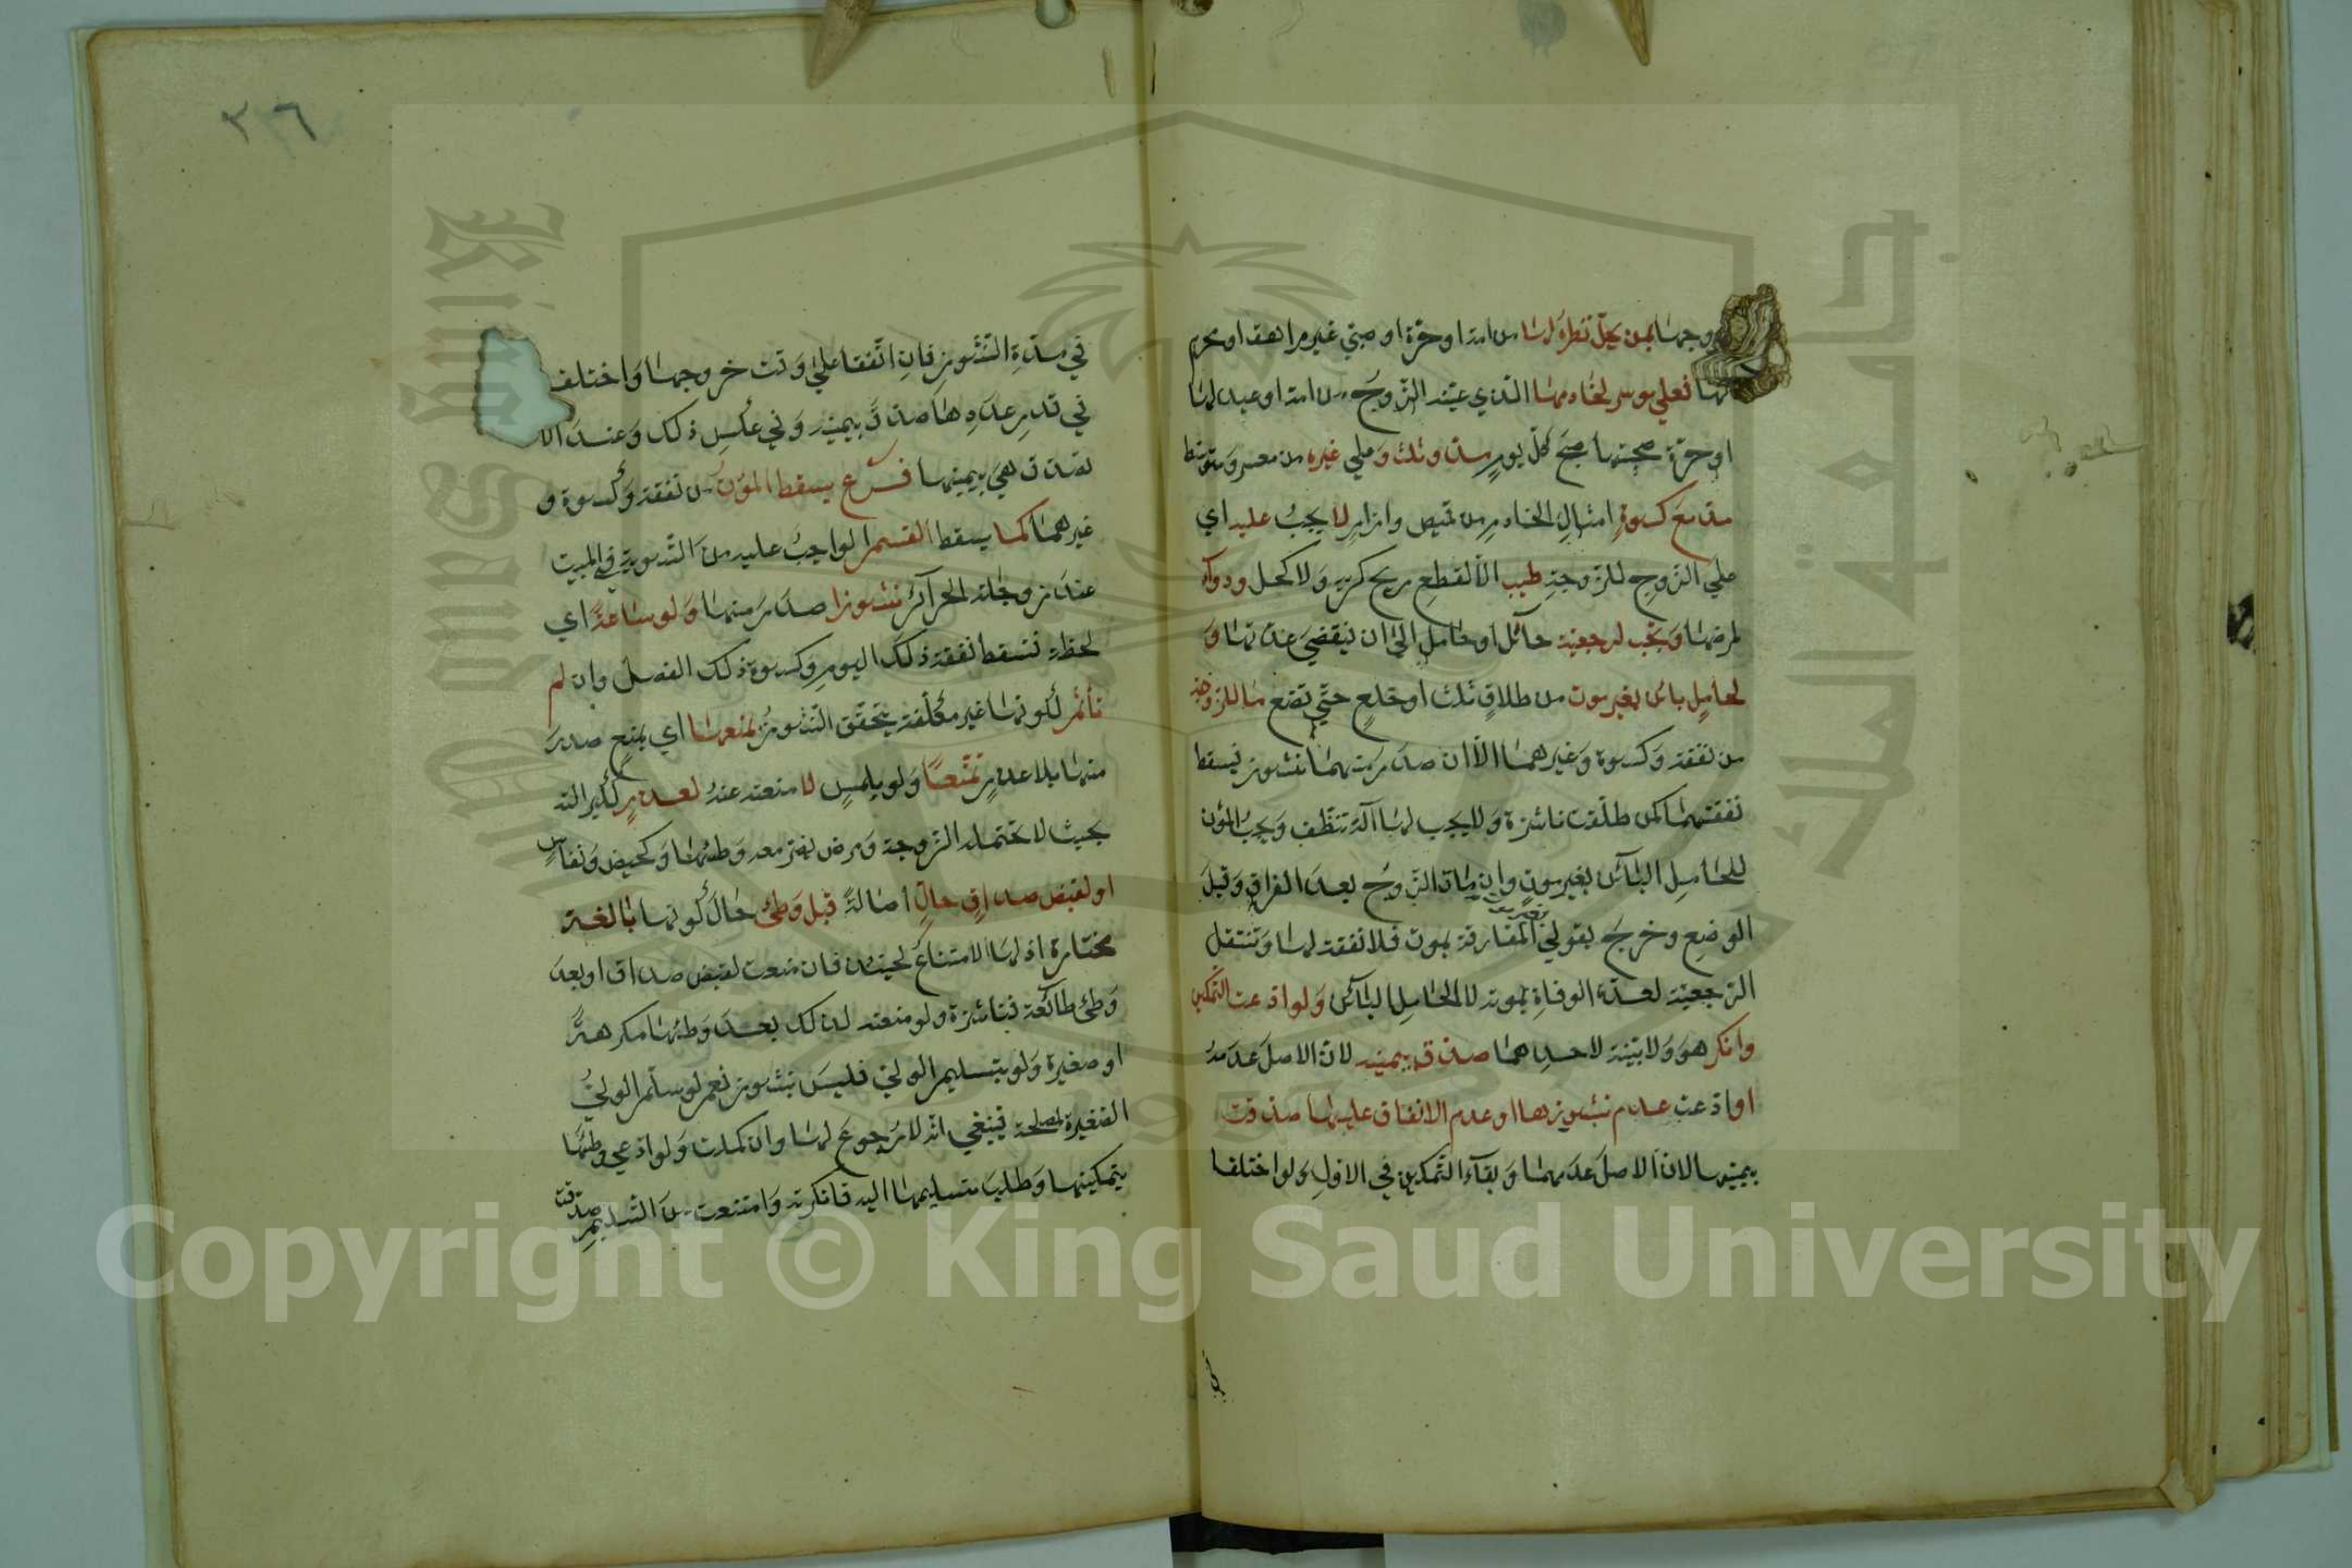 وجها بمن يحلّ نظره لها من امة او حرّة او صبي غير مراهق او محرم
لها فعلي موسر لخادمها الذي عيّنه الزّوج من امة او عبد لها
او حرّة صحبتها صبح كلّ يوم مدّ وثلث وعلي غيره من معسر ومتوسّط
مدّ مع كسوة امثال الخادم من قميص وازار لا يجب عليه اي
علي الزّوج للزّوجة طيب الّا لقطع ريح كريه ولا كحل ودواء
لمرضها وتجب لرجعيّة حائل او حامل الي ان ينقضي عدّتها و
لحامل بائن بغير موت من طلاق ثلث او خلع حتّي تضع ما للزوجة
من نفقة وكسوة وغيرهما الّا ان صدرت منهما نشوز فيسقط
نفقتهما كمن طلّقت ناشزة ولا يجب لها آلة تنظّف ويجب المؤن
للحامل البائن بغير موت وان مات الزّوج بعد الفراق وقبل
الوضع وخرج بقولي بغير موت المفارقة بموت فلا نفقة لها وتنتقل
الرّجعيّة لعدّة الوفاة بموته لا الحامل البائن ولو ادّعت التّمكين
وانكر هو ولا بيّنة لاحدهما صدّق بيمينه لانّ الاصل عدمه
او ادّعت عدم نشوزها او عدم الانفاق عليها صدّقت
بيمينها لانّ الاصل عدمهما وبقاء التّمكين في الاوّل ولو اختلفا
٣٦
في مدّة النّشوز فان اتّفقا علي وقت خروجها واختلف
في قدر عدوها صدّق بيمينه وفي عكس ذلك وعند الا
تصدّق هي بيمينها فرع يسقط المؤن من نفقة وكسوة و
غيرهما كما يسقط القسم الواجب عليه من التّسوية في المبيت
عند زوجاته الحرائر نشوزا صدر منها ولو ساعة اي
لحظة فتسقط نفقة ذلك اليوم وكسوة ذلك الفصل وان لم
تأثم لكونها غير مكلّفة يتحقّق النّشوز بمنعها اي بمنع صدر
منها بلا عذر تمتّعا ولو بلمس لا منعته عنه لعذر لكبر آلته
بحيث لا تحتمله الزوجة ومرض يضرّ معه وطئها وكحيض ونفاس
او لقبض صداق حالّ اصالة قبل وطئ حال كونها بالغة
مختارة اذ لها الامتناع لحينئذ فان منعت لقبض صداق او بعد
وطئ طائعة فناشزة ولو منعته لذلك بعد وطئها مكرهة
او صغيرة ولو بتسليم الولي فليس نشوز نعم لو سلّم الوليّ
الصّغيرة لمصلحة فينبغي انّه لا رجوع لها وان كملت ولو ادّعي وطئها
بتمكينها وطلب تسليمها اليه فانكرته وامتنعت من التّسليم صدّقت
Copyright © King Saud University
King Saud University
جامعة الملك